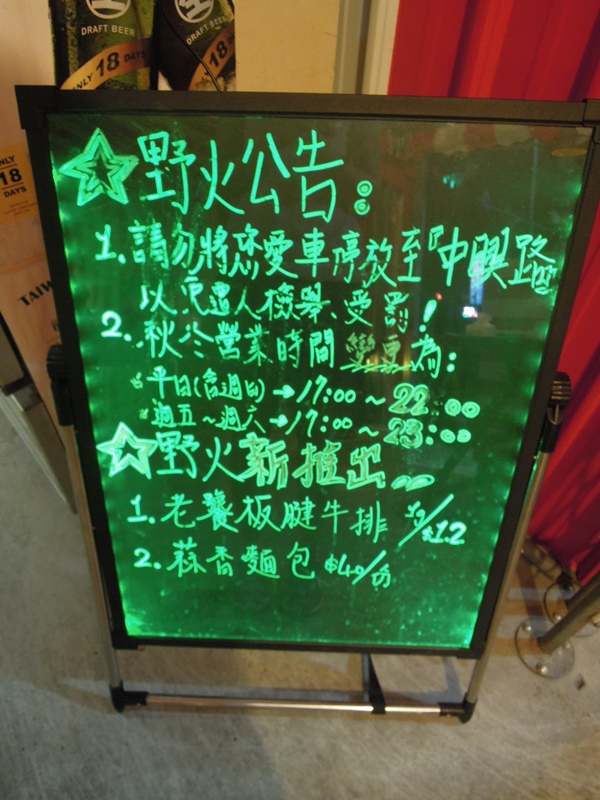 DRAFT BEER
ONLY 18 DAYS
DRAFT BEER
18 DAYS
ONLY
18
DAYS
TAIW
☆野火公告:
1.請勿將您愛車停放至『中興路』
以免遭人檢舉、受罰!
2.秋冬營業時間變更為:
平日(含週日)→17:00~22:00
週五~週六→17:00~23:00
☆野火新推出
1.老饕板腱牛排
2.蒜香麵包 $40/份